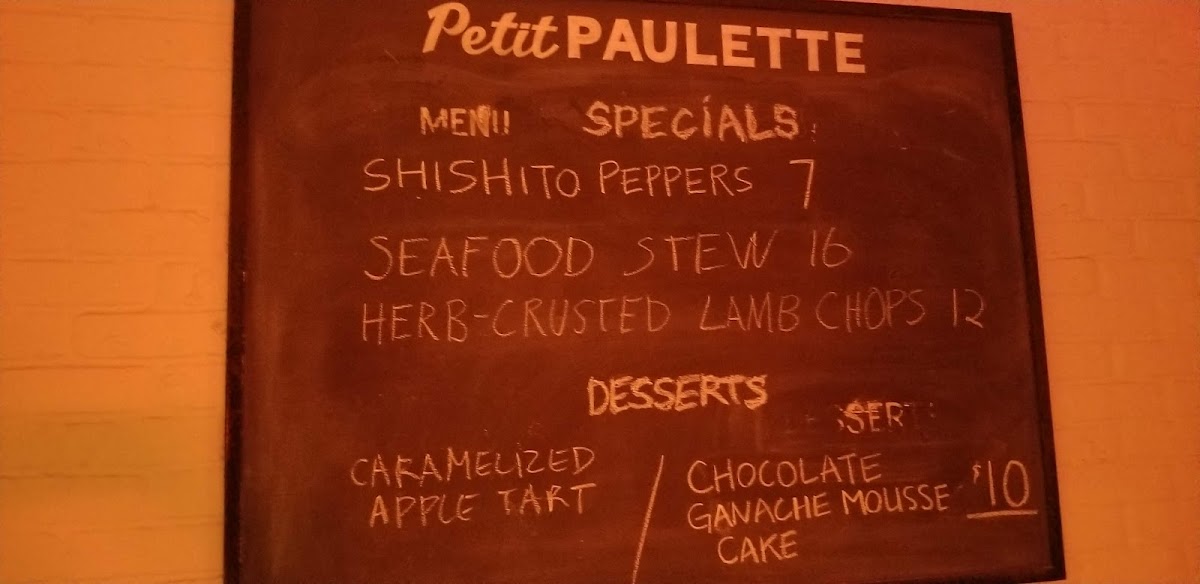 Petit PAULETTE
MENU SPECIALS
SHISHITO PEPPERS 7
SEAFOOD STEW 16
HERB-CRUSTED LAMB CHOPS 12
DESSERTS
CARAMELIZED
APPLE TART
/
CHOCOLATE
GANACHE MOUSSE
CAKE
$10